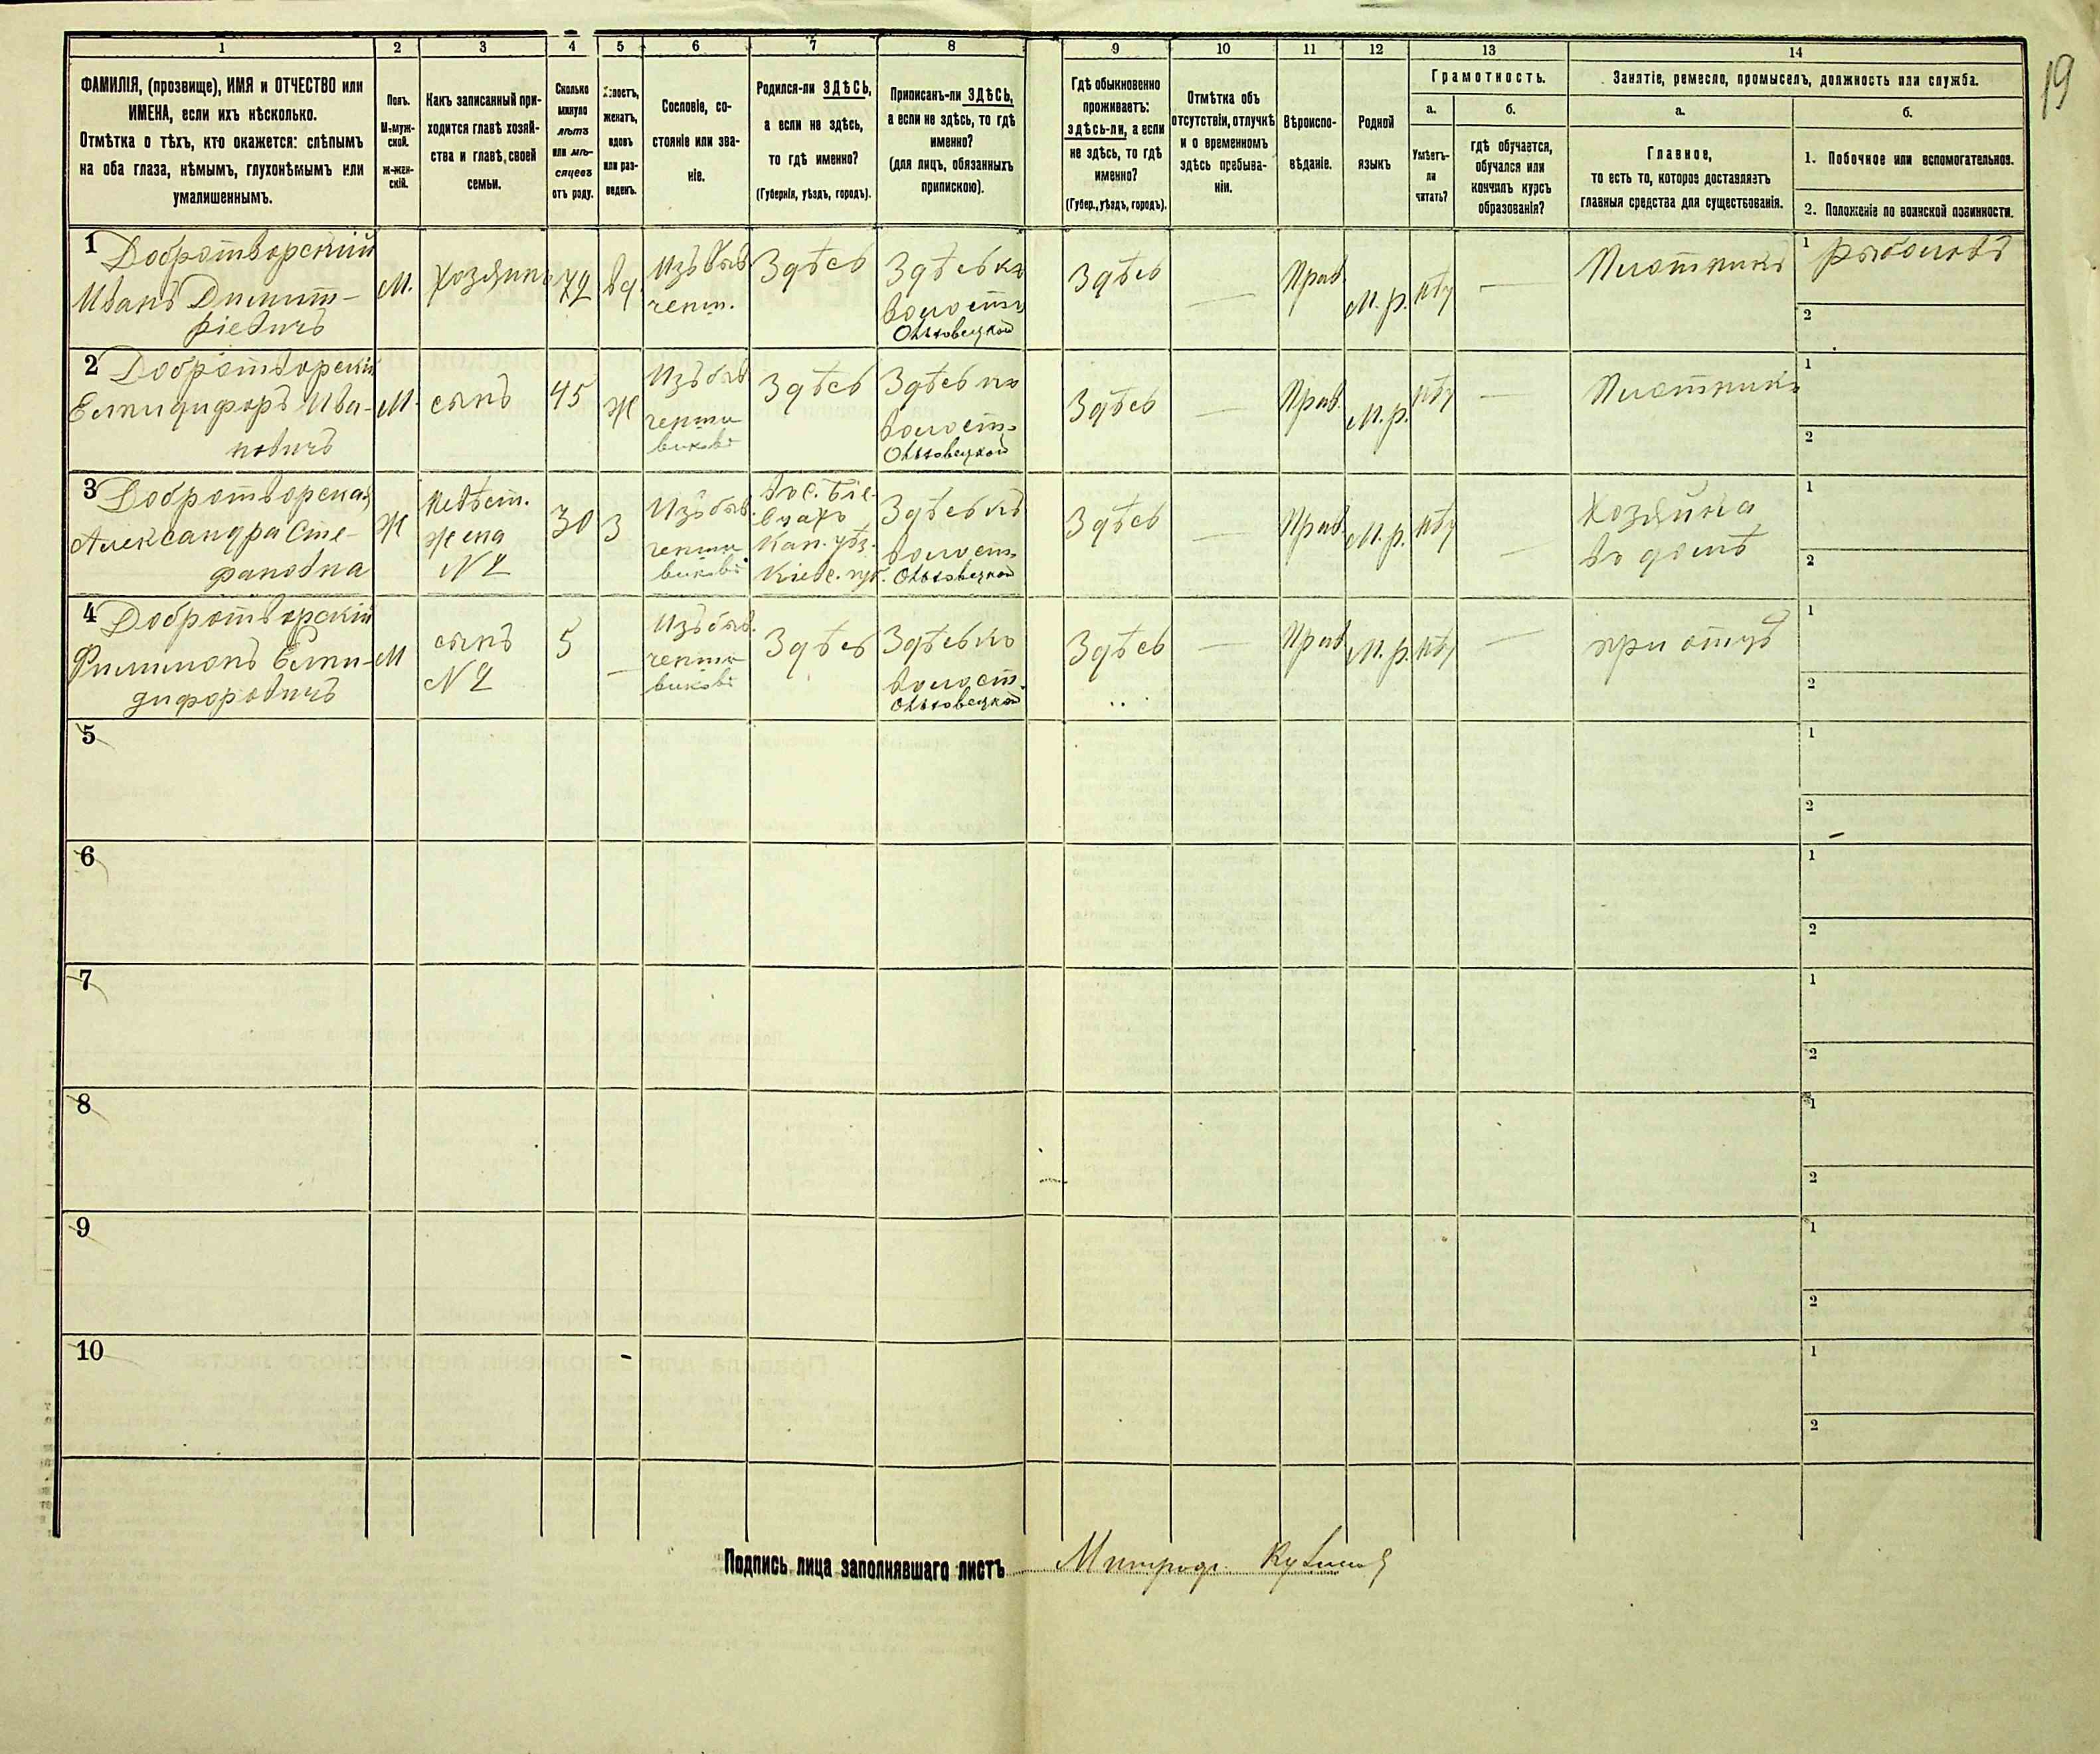 19
1 2 3 4 5 6 7 8 9 10 11 12 13 14
ФАМИЛІЯ, (прозвище), ИМЯ и ОТЧЕСТВО или
ИМЕНА, если ихъ нѣсколько.
Отмѣтка о тѣхъ, кто окажется: слѣпымъ
на оба глаза, нѣмымъ, глухонѣмымъ или
умалишеннымъ.
Полъ.
М-муж-
ской.
Ж-жен-
скій.
Какъ записанный при-
ходится главѣ хозяй-
ства и главѣ, своей
семьи.
Сколько
минуло
лѣтъ
или мѣ-
сяцевъ
отъ роду.
Холостъ,
женатъ,
вдовъ
или раз-
веденъ.
Сословіе, со-
стояніе или зва-
ніе.
Родился-ли ЗДѢСЬ,
а если не здѣсь,
то гдѣ именно?
(Губернія, уѣздъ, городъ).
Приписанъ-ли ЗДѢСЬ,
а если не здѣсь, то гдѣ
именно?
(для лицъ, обязанныхъ
припискою).
Гдѣ обыкновенно
проживаетъ:
здѣсь-ли, а если
не здѣсь, то гдѣ
именно?
(Губер., уѣздъ, городъ).
Отмѣтка объ
отсутствіи, отлучкѣ
и о временномъ
здѣсь пребыва-
ніи.
Вѣроиспо-
вѣданіе.
Родной
языкъ
Грамотность.
а.
Умѣетъ-
ли
читать?
б.
гдѣ обучается,
обучался или
кончилъ курсъ
образованія?
Занятіе, ремесло, промыселъ, должность или служба.
а.
Главное,
то есть то, которое доставляетъ
главныя средства для существованія.
б.
1. Побочное или вспомогательное.
2. Положеніе по воинской повинности.
1 Добротворскій
Иванъ Димит-
ріевичъ
М.
Хозяинъ
72
вд
Изъ быв
Здѣсь
Здѣсь къ
волости
Ольховецкой
Здѣсь
—
Прав.
М. р.
нѣт
—
Плотникъ
1 рыболовъ
2
2 Добротворскій
Елпидифоръ Ива-
новичъ
М.
сынъ
45
Ж
Изъ быв
Здѣсь
Здѣсь къ
волост.
Ольховецкой
Здѣсь
—
Прав.
М. р.
нѣт
—
Плотникъ
1
2
3 Добротворская
Александра Сте-
фановна
Ж
Невѣст.
жена
№ 2
30
З
Изъ быв.
Кан. уѣз.
Кіевс. губ.
Здѣсь къ
волост.
Ольховецкой
Здѣсь
—
Прав
М. р.
нѣт
—
Хозяйка
въ домѣ
1
2
4 Добротворскій
Филимонъ Елпи-
дифоровичъ
М
сынъ
№ 2
5
—
Изъ быв.
Здѣсь
Здѣсь къ
волост.
Ольховецкой
Здѣсь
—
Прав
М. р.
нѣт
—
при отцѣ
1
2
5
1
2
6
1
2
7
1
2
8
1
2
9
1
2
10
1
2
Подпись лица заполнявшаго листъ